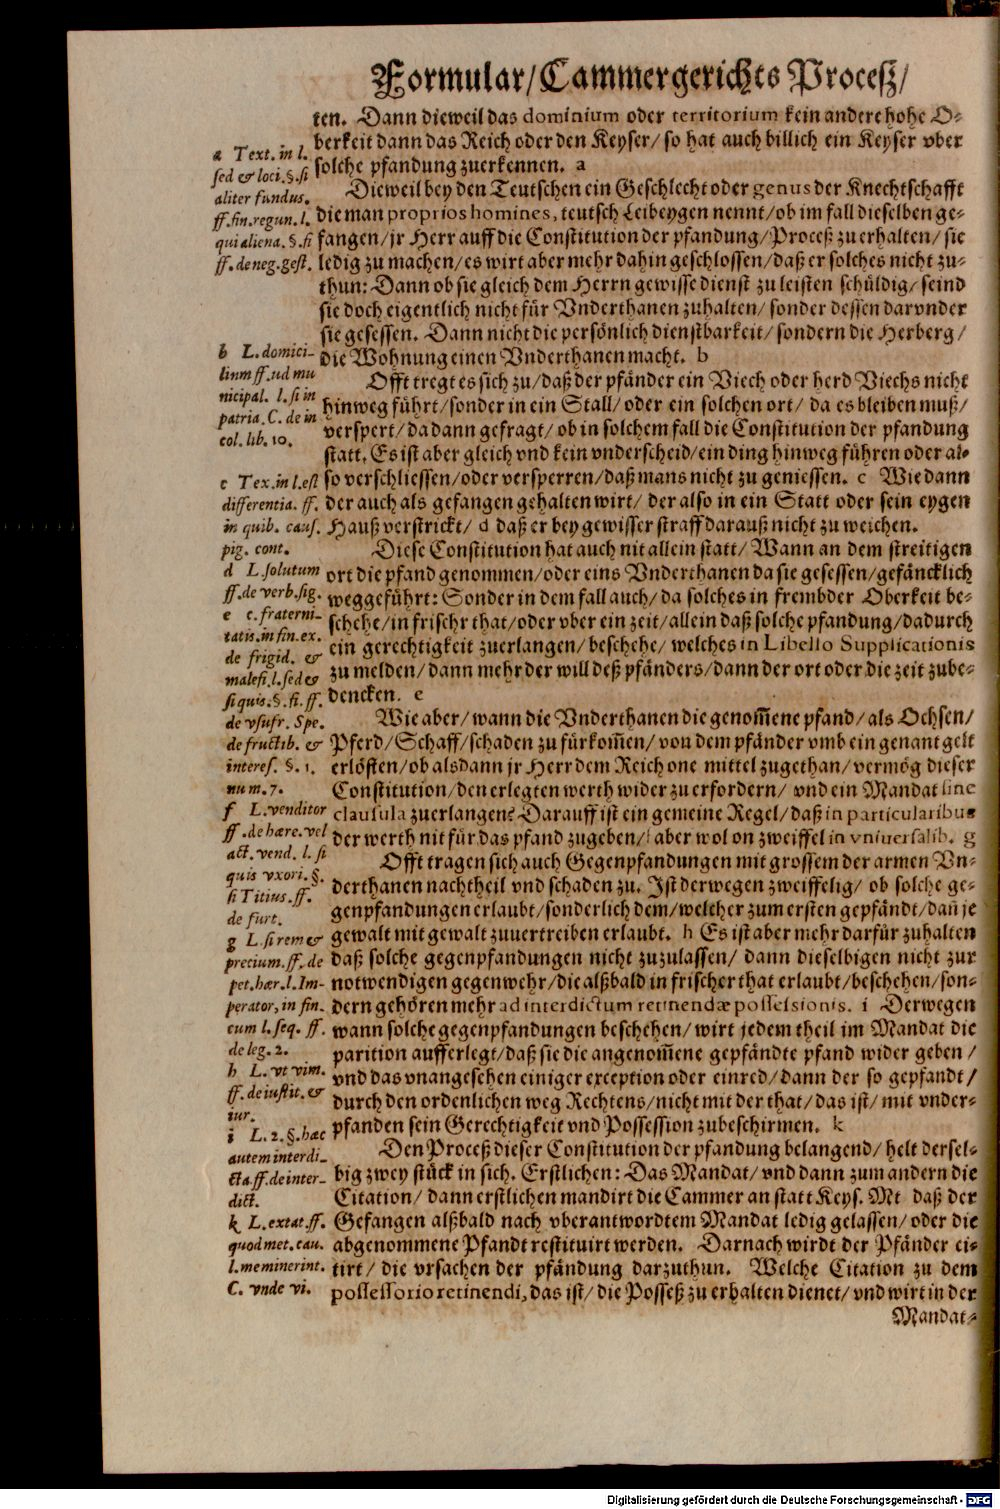 Formular/Cammergerichts Proceß/
ten. Dann dieweil das dominium oder territorium kein andere hohe O-
berkeit dann das Reich oder den Keyser/ so hat auch billich ein Keyser vber
solche pfandung zuerkennen. a
Dieweil bey den Teutschen ein Geschlecht oder genus der Knechtschafft
die man proprios homines, teutsch Leibeygen nennt/ob im fall dieselben ge-
fangen/jr Herr auff die Constitution der pfandung/Proceß zu erhalten/ sie
ledig zu machen/es wirt aber mehr dahin geschlossen/daß er solches nicht zu-
thun: Dann ob sie gleich dem Herrn gewisse dienst zu leisten schüldig/ seind
sie doch eigentlich nicht für Vnderthanen zuhalten/ sonder dessen darvnder
sie gesessen. Dann nicht die persönlich dienstbarkeit/ sondern die Herberg/
die Wohnung einen Vnderthanen macht. b
Offt tregt es sich zu/daß der pfänder ein Viech oder herd Viechs nicht
hinweg führt/sonder in ein Stall/oder ein solchen ort/ da es bleiben muß/
verspert/da dann gefragt/ob in solchem fall die Constitution der pfandung
statt. Es ist aber gleich vnd kein vnderscheid/ein ding hinweg führen oder al-
so verschliessen/oder versperren/daß mans nicht zu geniessen. c Wie dann
der auch als gefangen gehalten wirt/ der also in ein Statt oder sein eygen
Hauß verstrickt/ d daß er bey gewisser straff darauß nicht zu weichen.
Diese Constitution hat auch nit allein statt/ Wann an dem streitigen
ort die pfand genommen/oder eins Vnderthanen da sie gesessen/gefäncklich
weggeführt: Sonder in dem fall auch/da solches in frembder Oberkeit be-
schehe/in frischr that/oder vber ein zeit/allein daß solche pfandung/dadurch
ein gerechtigkeit zuerlangen/ beschehe/ welches in Libello Supplicationis
zu melden/dann mehr der will deß pfänders/dann der ort oder die zeit zube-
dencken. e
Wie aber/wann die Vnderthanen die genom̄ene pfand/als Ochsen/
Pferd/Schaff/schaden zu fürkom̄en/von dem pfänder vmb ein genant gelt
erlösten/ob alsdann jr Herr dem Reich one mittel zugethan/vermög dieser
Constitution/den erlegten werth wider zu erfordern/ vnd ein Mandat sine
clausula zuerlangen? Darauff ist ein gemeine Regel/daß in particularibus
der werth nit für das pfand zugeben/f aber wol on zweiffel in vniuersalib. g
Offt tragen sich auch Gegenpfandungen mit grossem der armen Vn-
derthanen nachtheil vnd schaden zu. Ist derwegen zweiffelig/ ob solche ge-
genpfandungen erlaubt/sonderlich dem/welcher zum ersten gepfändt/dañ je
gewalt mit gewalt zuuertreiben erlaubt. h Es ist aber mehr darfür zuhalten
daß solche gegenpfandungen nicht zuzulassen/ dann dieselbigen nicht zur
notwendigen gegenwehr/die alßbald in frischer that erlaubt/beschehen/son-
dern gehören mehr ad interdictum retinendæ possessionis. i Derwegen
wann solche gegenpfandungen beschehen/ wirt jedem theil im Mandat die
parition aufferlegt/daß sie die angenom̄ene gepfändte pfand wider geben/
vnd das vnangesehen einiger exception oder einred/ dann der so gepfandt/
durch den ordenlichen weg Rechtens/nicht mit der that/das ist/ mit vnder-
pfanden sein Gerechtigkeit vnd Possession zubeschirmen. k
Den Proceß dieser Constitution der pfandung belangend/ helt dersel-
big zwey stück in sich. Erstlichen: Das Mandat/ vnd dann zum andern die
Citation/ dann erstlichen mandirt die Cammer an statt Keys. Mt daß der
Gefangen alßbald nach vberantwordtem Mandat ledig gelassen/ oder die
abgenommene Pfandt restituirt werden. Darnach wirdt der Pfänder ci-
tirt/ die vrsachen der pfändung darzuthun. Welche Citation zu dem
possessorio retinendi, das ist/ die Posseß zu erhalten dienet/ vnd wirt in der
Mandat-
a Text. in l.
sed & loci. §. si
aliter fundus.
ff. fin. regun. l.
qui aliena. §. fi
ff. de neg. gest.
b L. domici-
linm ff. ud mu
nicipal. l. si in
patria. C. de in
col. lib. 10.
c Tex. in l. est
differentia. ff.
in quib. caus.
pig. cont.
d L. solutum
ff. de verb. sig.
e c. fraterni-
tatis. in fin. ex.
de frigid. &
malefi. l. sed &
si quis. §. si. ff.
de vsufr. Spe.
de fructib. &
interes. §. 1.
num. 7.
f L. venditor
ff. de hære. vel
act. vend. l. si
quis vxori. §.
si Titius. ff.
de furt.
g L. si rem &
precium. ff. de
pet. hær. l. Im-
perator, in fin.
cum l. seq. ff.
de leg. 2.
h L. vt vim.
ff. de iustit. &
iur.
i L. 2. §. hæc
autem interdi-
cta. ff. de inter-
dict.
k L. extat. ff.
quod met. cau.
l. meminerint.
C. vnde vi.
Digitalisierung gefördert durch die Deutsche Forschungsgemeinschaft - DFG